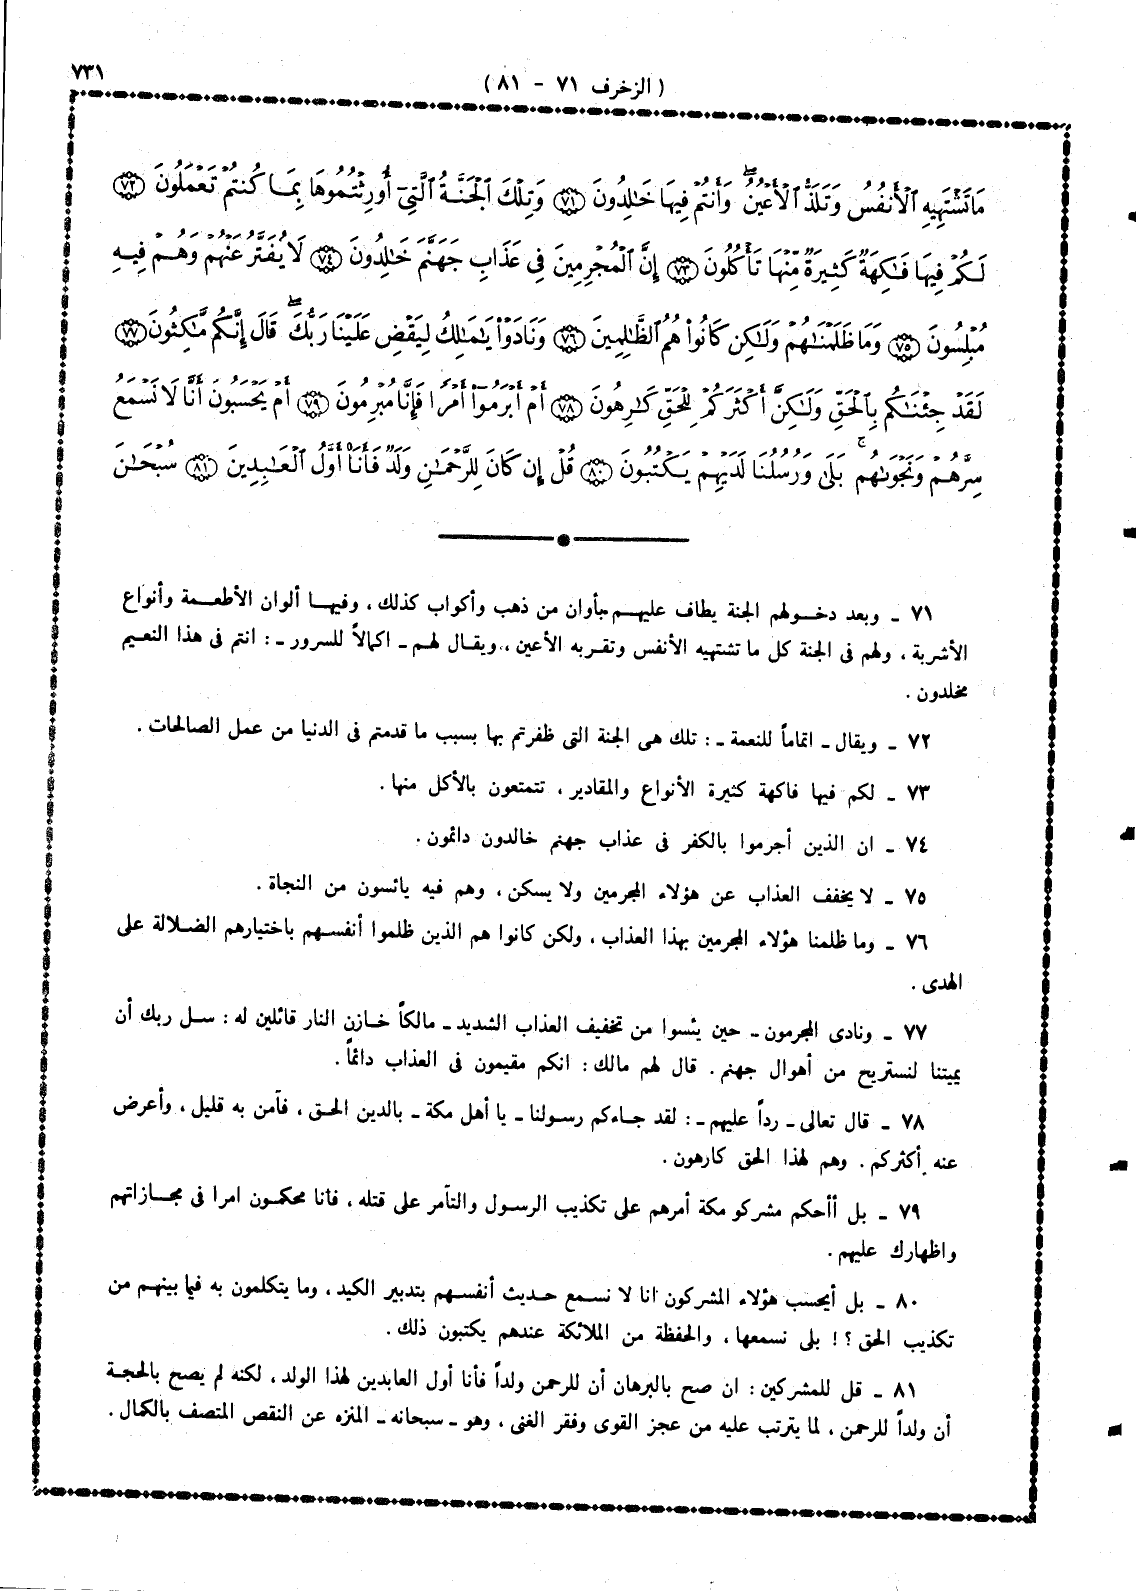 ٧٣١
( الزخرف ٧١ - ٨١ )
مَا تَشْتَهِيهِ ٱلْأَنفُسُ وَتَلَذُّ ٱلْأَعْيُنُ ۖ وَأَنتُمْ فِيهَا خَـٰلِدُونَ ٧١ وَتِلْكَ ٱلْجَنَّةُ ٱلَّتِىٓ أُورِثْتُمُوهَا بِمَا كُنتُمْ تَعْمَلُونَ ٧٢
لَكُمْ فِيهَا فَـٰكِهَةٌ كَثِيرَةٌ مِّنْهَا تَأْكُلُونَ ٧٣ إِنَّ ٱلْمُجْرِمِينَ فِى عَذَابِ جَهَنَّمَ خَـٰلِدُونَ ٧٤ لَا يُفَتَّرُ عَنْهُمْ وَهُمْ فِيهِ
مُبْلِسُونَ ٧٥ وَمَا ظَلَمْنَـٰهُمْ وَلَـٰكِن كَانُوا۟ هُمُ ٱلظَّـٰلِمِينَ ٧٦ وَنَادَوْا۟ يَـٰمَـٰلِكُ لِيَقْضِ عَلَيْنَا رَبُّكَ ۖ قَالَ إِنَّكُم مَّـٰكِثُونَ ٧٧
لَقَدْ جِئْنَـٰكُم بِٱلْحَقِّ وَلَـٰكِنَّ أَكْثَرَكُمْ لِلْحَقِّ كَـٰرِهُونَ ٧٨ أَمْ أَبْرَمُوٓا۟ أَمْرًا فَإِنَّا مُبْرِمُونَ ٧٩ أَمْ يَحْسَبُونَ أَنَّا لَا نَسْمَعُ
سِرَّهُمْ وَنَجْوَىٰهُم ۚ بَلَىٰ وَرُسُلُنَا لَدَيْهِمْ يَكْتُبُونَ ٨٠ قُلْ إِن كَانَ لِلرَّحْمَـٰنِ وَلَدٌ فَأَنَا۠ أَوَّلُ ٱلْعَـٰبِدِينَ ٨١ سُبْحَـٰنَ
٧١ ـ وبعد دخولهم الجنة يطاف عليهم بأوان من ذهب وأكواب كذلك ، وفيها ألوان الأطعمة وأنواع
الأشربة ، ولهم فى الجنة كل ما تشتهيه الأنفس وتقربه الأعين ، ويقال لهم ـ اكمالاً للسرور ـ : انتم فى هذا النعيم
مخلدون .
٧٢ ـ ويقال ـ اتماماً للنعمة ـ : تلك هى الجنة التى ظفرتم بها بسبب ما قدمتم فى الدنيا من عمل الصالحات .
٧٣ ـ لكم فيها فاكهة كثيرة الأنواع والمقادير ، تتمتعون بالأكل منها .
٧٤ ـ ان الذين أجرموا بالكفر فى عذاب جهنم خالدون دائمون .
٧٥ ـ لا يخفف العذاب عن هؤلاء المجرمين ولا يسكن ، وهم فيه يائسون من النجاة .
٧٦ ـ وما ظلمنا هؤلاء المجرمين بهذا العذاب ، ولكن كانوا هم الذين ظلموا أنفسهم باختيارهم الضلالة على
الهدى .
٧٧ ـ ونادى المجرمون ـ حين يئسوا من تخفيف العذاب الشديد ـ مالكاً خازن النار قائلين له : سل ربك أن
يميتنا لنستريح من أهوال جهنم . قال لهم مالك : انكم مقيمون فى العذاب دائماً .
٧٨ ـ قال تعالى ـ رداً عليهم ـ : لقد جاءكم رسولنا ـ يا أهل مكة ـ بالدين الحق ، فآمن به قليل ، وأعرض
عنه أكثركم . وهم لهذا الحق كارهون .
٧٩ ـ بل أأحكم مشركو مكة أمرهم على تكذيب الرسول والتآمر على قتله ، فانا محكمون امرا فى مجازاتهم
واظهارك عليهم .
٨٠ ـ بل أيحسب هؤلاء المشركون انا لا نسمع حديث أنفسهم بتدبير الكيد ، وما يتكلمون به فيما بينهم من
تكذيب الحق ؟ ! بلى نسمعها ، والحفظة من الملائكة عندهم يكتبون ذلك .
٨١ ـ قل للمشركين : ان صح بالبرهان أن للرحمن ولداً فأنا أول العابدين لهذا الولد ، لكنه لم يصح بالحجة
أن ولداً للرحمن ، لما يترتب عليه من عجز القوى وفقر الغنى ، وهو ـ سبحانه ـ المنزه عن النقص المتصف بالكمال .